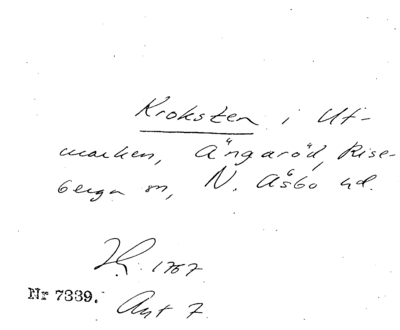 Kroksten i Ut-
marken, Ängaröd, Rise-
berga sn, N. Åsbo hd.
1767
Nr 7339.
Akt 7